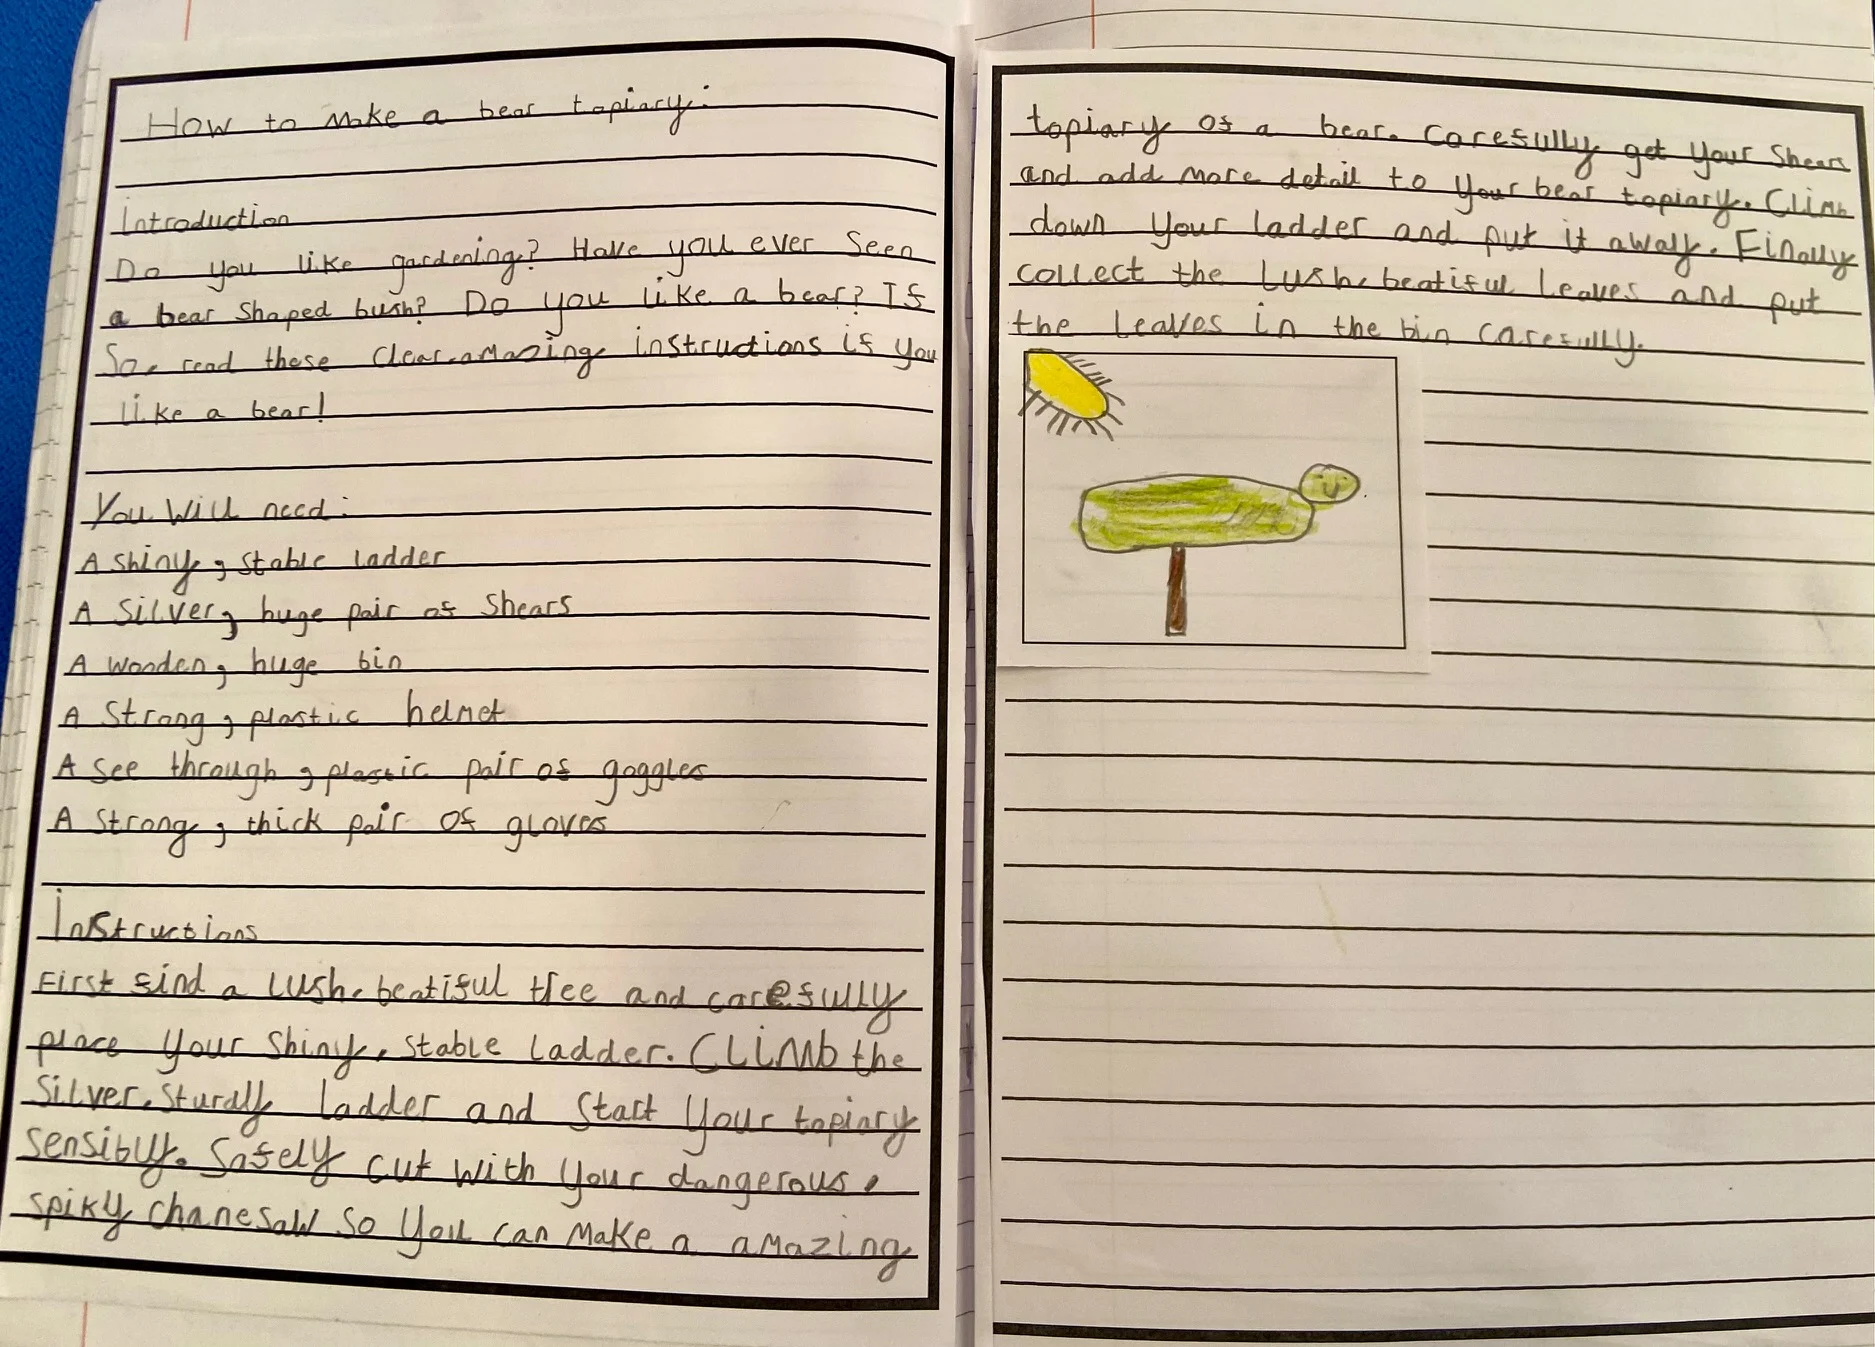 How to make a bear topiary:
Introduction
Do you like gardening? Have you ever seen
a bear shaped bush? Do you like a bear? If
so, read these clear, amazing instructions if you
like a bear!
You will need:
A shiny, stable ladder
A silver, huge pair of shears
A wooden, huge bin
A strong, plastic helmet
A see through, plastic pair of goggles
A strong, thick pair of gloves
Instructions
First find a lush, beatiful tree and carefully
place your shiny, stable ladder. Climb the
silver, sturdy ladder and start your topiary
sensibly. Safely cut with your dangerous,
spiky chanesaw so you can make a amazing
topiary of a bear. Carefully get your shears
and add more detail to your bear topiary. Climb
down your ladder and put it away. Finally
collect the lush, beatiful leaves and put
the leaves in the bin carefully.